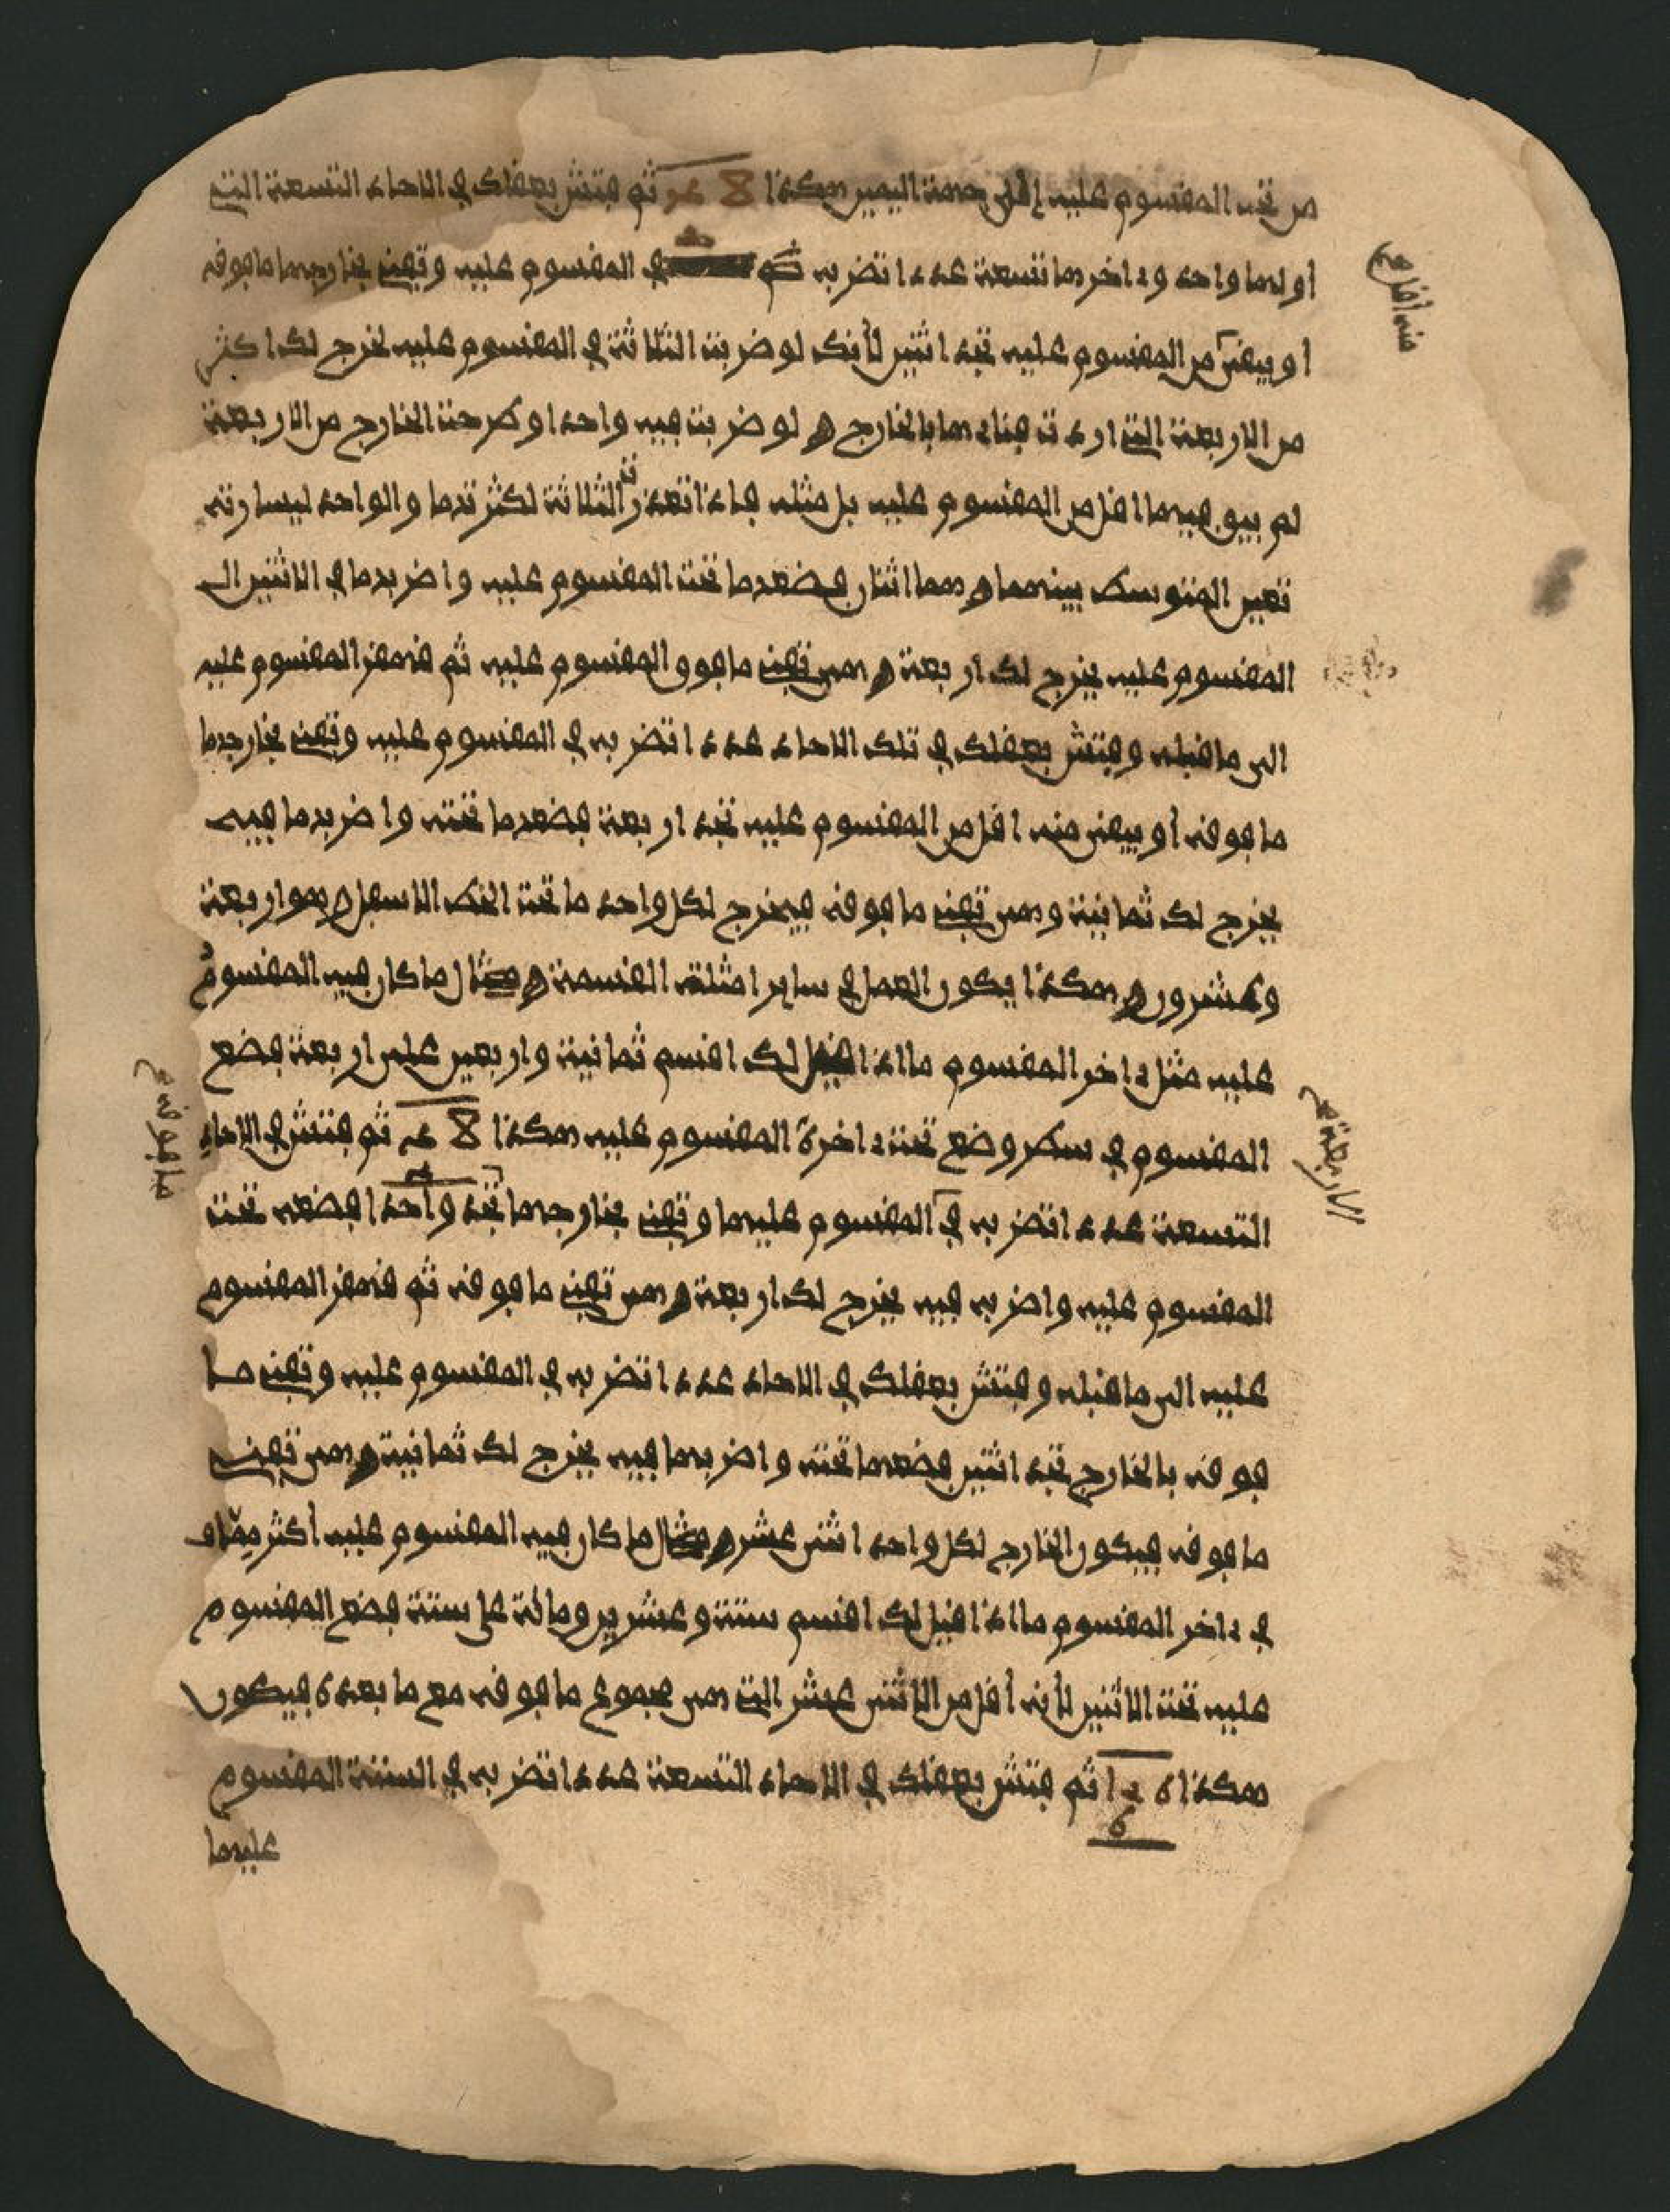 من تحت المقسوم عليه إلى جهة اليمين هكذا 8 عو ثم فتش بعقلك في الاحاد التسعة التي
أولها واحد وءاخرها تسعة عددا تضربه في المقسوم عليه وتفني بخارجها ما فوقه
أو يبقى من المقسوم عليه تجد اثنين لأنك لو ضربت الثلاثة في المقسوم عليه لخرج لك اكثر
من الاربعة التي اردت فناءها بالخارج ولو ضربت فيه واحدا وطرحت الخارج من الاربعة
لم يبق فيها اقل من المقسوم عليه بل مثله فاذا تعذرت الثلاثة لكثرتها والواحد ليسارته
تعين المتوسط بينهما وهما اثنان فضعهما تحت المقسوم عليه واضربهما في الاثنين ال
المقسوم عليه يخرج لك اربعة وهي تفني ما فوق المقسوم عليه ثم قهقر المقسوم عليه
الى ما قبله وفتش بعقلك في تلك الاحاد عددا تضربه في المقسوم عليه وتفني بخارجها
ما فوقه أو يبقى منه اقل من المقسوم عليه تجد اربعة فضعها تحته واضربها فيه
يخرج لك ثمانية وهي تفني ما فوقه فيخرج لكل واحد ما تحت الخط الاسفل وهو اربعة
وعشرون وهكذا يكون العمل في ساير امثلة القسمة ومثال ما كان فيه المقسوم
عليه مثل ءاخر المقسوم ما اذا قيل لك اقسم ثمانية واربعين على اربعة فضع
المقسوم في سطر وضع تحت ءاخره المقسوم عليه هكذا 8 عم ثم فتش في الاحاد
التسعة عددا تضربه في المقسوم عليها وتفني بخارجها تجد واحدا فضعه تحت
المقسوم عليه واضربه فيه يخرج لك اربعة وهي تفني ما فوقه ثم قهقر المقسوم
عليه الى ما قبله وفتش بعقلك في الاحاد عددا تضربه في المقسوم عليه وتفني ما
فوقه بالخارج تجد اثنين فضعهما تحته واضربهما فيه يخرج لك ثمانية وهي تفني
ما فوقه فيكون الخارج لكل واحد اثنى عشر ومثال ما كان فيه المقسوم عليه أكثر مما
في ءاخر المقسوم ما اذا قيل لك اقسم ستة وعشرين ومائة على ستة فضع المقسوم
عليه تحت الاثنين لأنه أقل من الاثنى عشر التي هي مجموع ما فوقه مع ما بعده فيكون
هكذا 6 2 1 ثم فتش بعقلك في الاحاد التسعة عددا تضربه في الستة المقسوم
6
عليها
منه أقل صح
الاربعة صح
ما فوقه صح